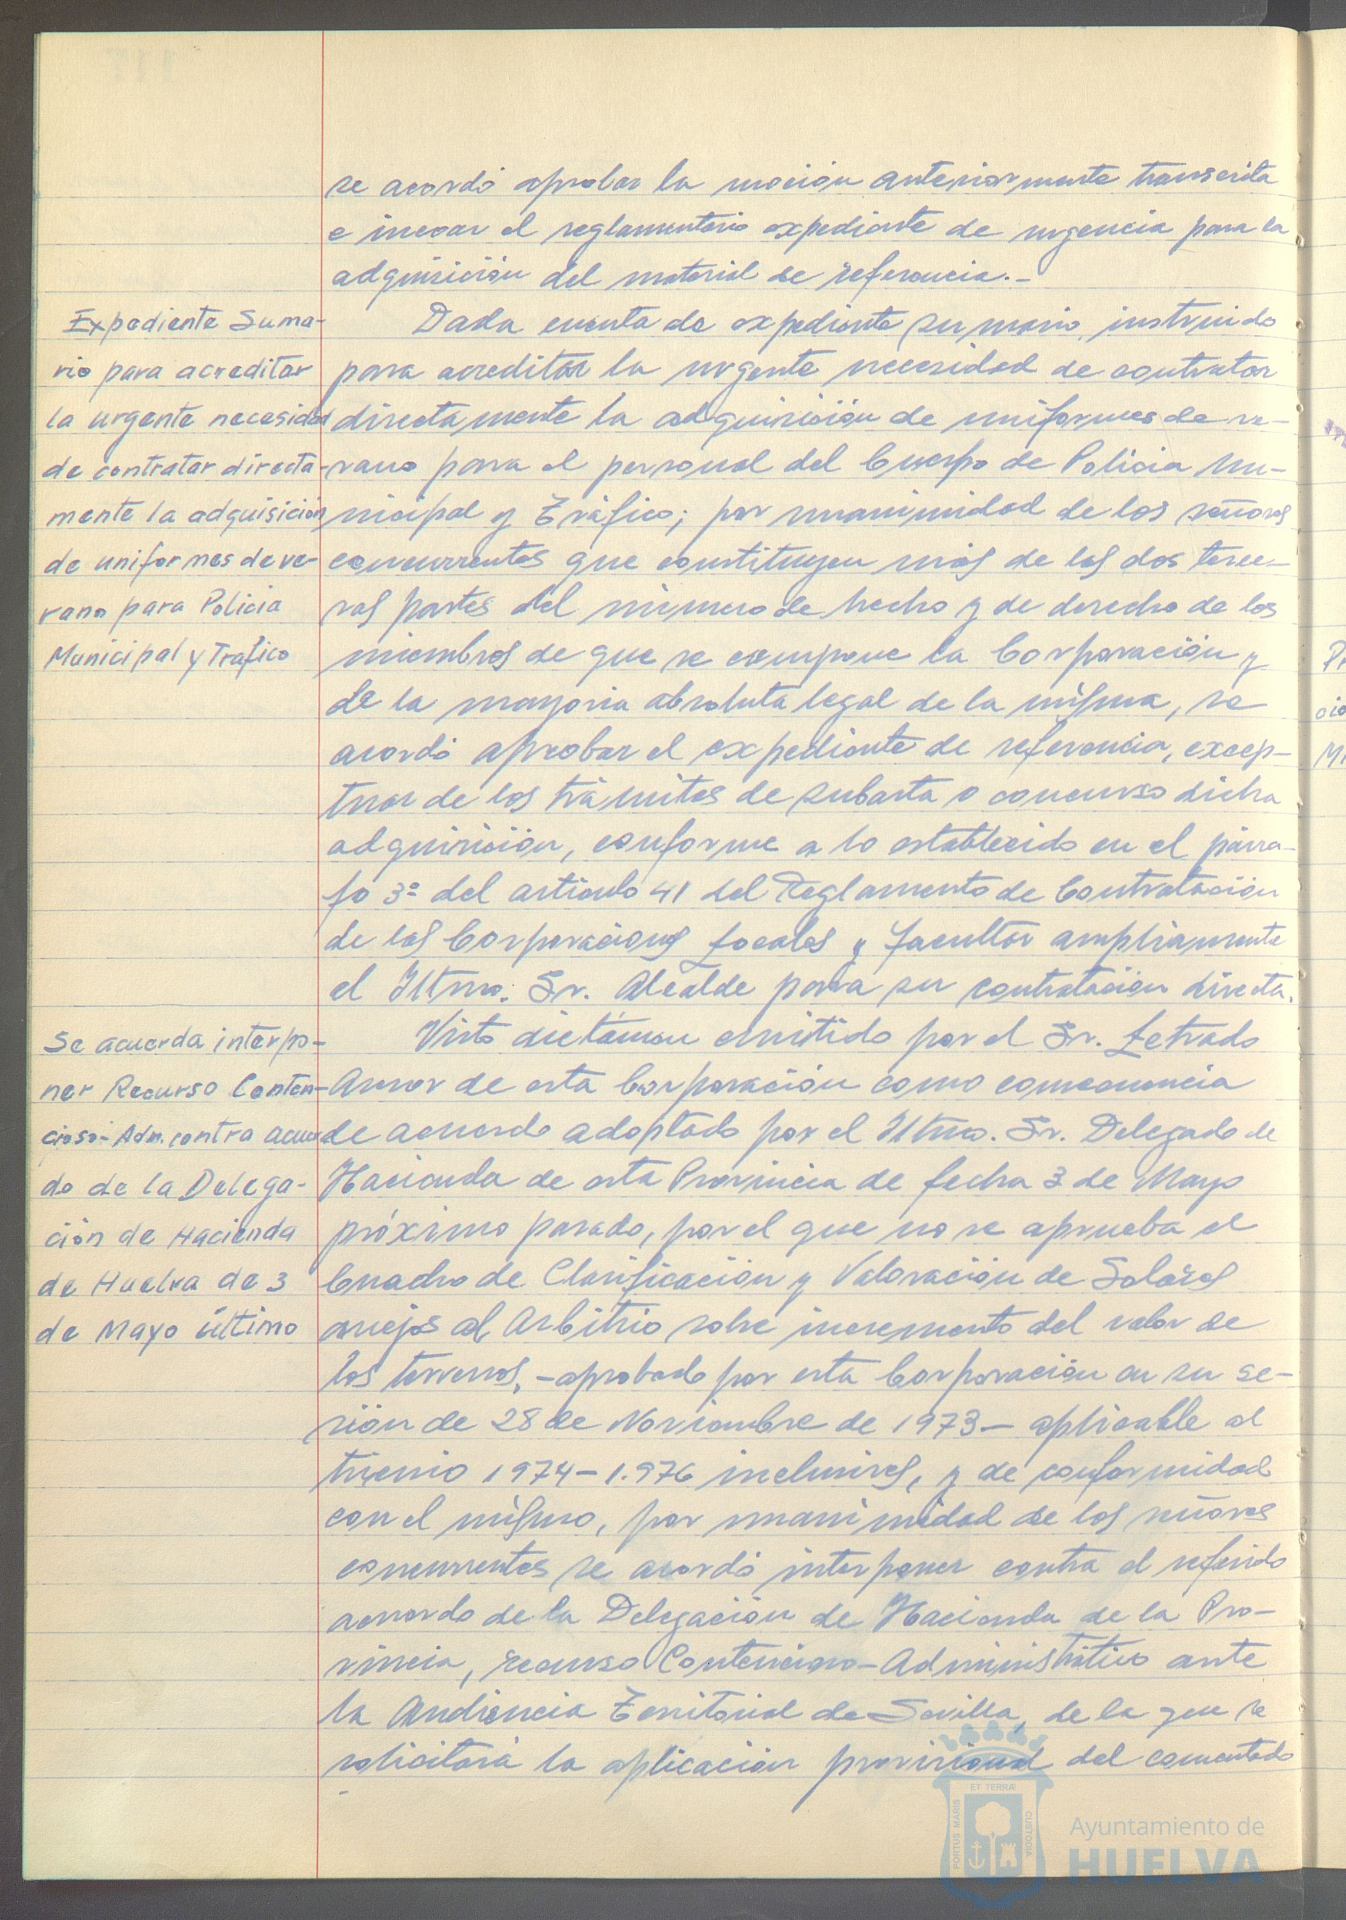 se acordó aprobar la moción anteriormente transcrita
e incoar el reglamentario expediente de urgencia para la
adquisición del material de referencia.-
Expediente Suma-
rio para acreditar
la urgente necesidad
de contratar directa-
mente la adquisición
de uniformes de ve-
rano para Policia
Municipal y Trafico
Dada cuenta de expediente sumario, instruido
para acreditar la urgente necesidad de contratar
directamente la adquisición de uniformes de ve-
rano para el personal del Cuerpo de Policia Mu-
nicipal y Tráfico; por unanimidad de los señores
concurrentes que constituyen más de las dos terce-
ras partes del número de hecho y de derecho de los
miembros de que se compone la Corporación y
de la mayoria absoluta legal de la misma, se
acordó aprobar el expediente de referencia, excep-
tuar de los trámites de subasta o concurso dicha
adquisición, conforme a lo establecido en el párra-
fo 3º del artículo 41 del Reglamento de Contratación
de las Corporaciones Locales y facultar ampliamente
el Iltmo. Sr. Alcalde para su contratación directa.
Se acuerda interpo-
ner Recurso Conten-
cioso-Adm. contra acuer
do de la Delega-
ción de Hacienda
de Huelva de 3
de Mayo último
Visto dictámen emitido por el Sr. Letrado
Asesor de esta Corporación como consecuencia
de acuerdo adoptado por el Iltmo. Sr. Delegado de
Hacienda de esta Provincia de fecha 3 de Mayo
próximo pasado, por el que no se aprueba el
Cuadro de Clasificación y Valoración de Solares
anejos al Arbitrio sobre incremento del valor de
los terrenos, -aprobado por esta Corporación en su se-
sión de 28 de Noviembre de 1973- aplicable al
trienio 1974-1.976 inclusives, y de conformidad
con el mismo, por unanimidad de los señores
concurrentes se acordó interponer contra el referido
acuerdo de la Delegación de Hacienda de la Pro-
vincia, recurso Contencioso-Administrativo ante
la Audiencia Territorial de Sevilla, de la que se
solicitará la aplicación provisional del comentado
PORTUS MARIS
ET TERRAE
CUSTODIA
Ayuntamiento de
HUELVA